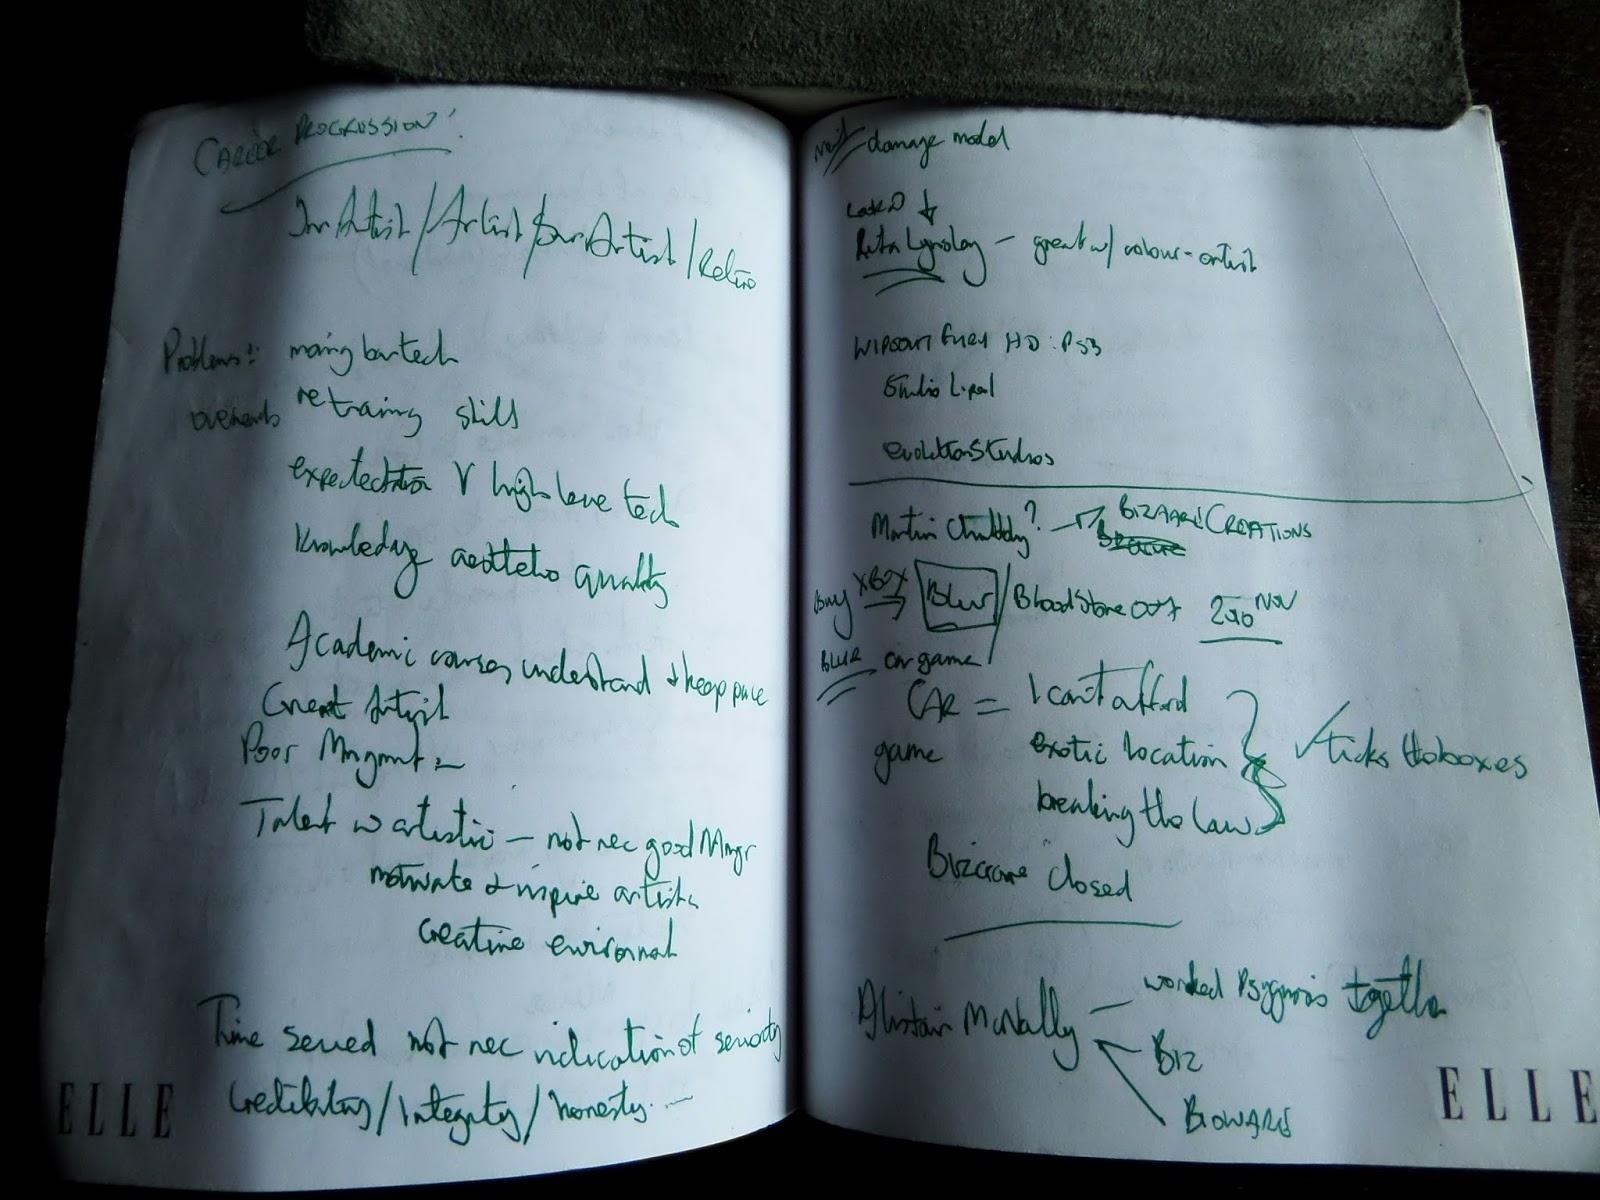 CAREER PROGRESSION!
Jnr Artist / Artist / Snr Artist / Retire
Problems?: moving bar tech
retraining skills
expectation V high leve tech
Knowledge aesthetic quality
Academic courses understand + keep pace
Great Artist
Poor Mngmnt
Talent w artistic – not nec good Mngr
motivate & inspire artists
creative
Time served not nec indication of seniority
Credibility / Integrity / honesty. —
ELLE
damage model
– great w/ colour - artist
WIPEOUT FURY HD : PS3
Studio L.pool
evolution Studios
Martin ? → BIZAARE CREATIONS
Buy XBOX → Blur / BloodStone 007 2010 NOV
BLUR car game
CAR = I can't afford
game exotic location ✓ ticks the boxes
breaking the law
Bizarre closed
Alistair McNally – worked Psygnosis together
BIZ
BIOWARE
ELLE